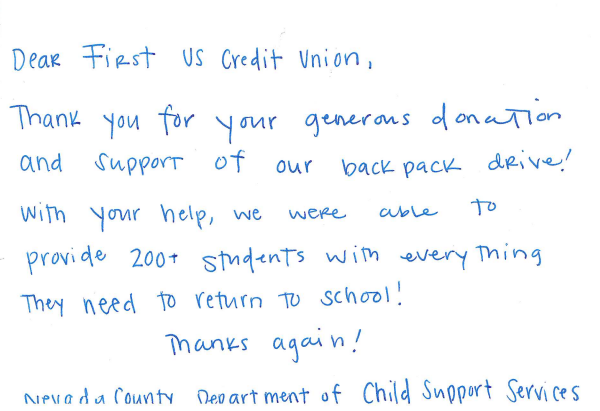 Dear First US Credit Union,
Thank you for your generous donation
and support of our back pack drive!
With your help, we were able to
provide 200+ students with everything
They need to return to school!
Thanks again!
Nevada County Department of Child Support Services